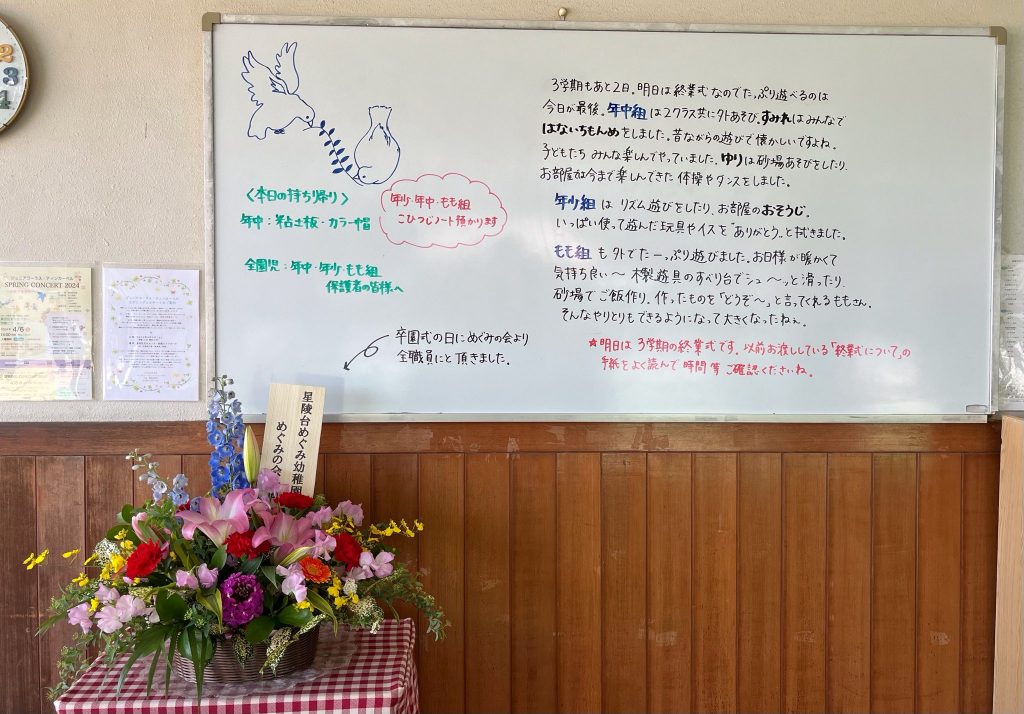 2
3
4
SPRING CONCERT 2024
4/6
<本日の持ち帰り>
年中:粘土板・カラー帽
年少・年中・もも組
こひつじノート預かります
全園児:年中・年少・もも組
保護者の皆様へ
卒園式の日にめぐみの会より
全職員にと頂きました。
3学期もあと2日。明日は終業式なのでたっぷり遊べるのは
今日が最後。年中組は2クラス共に外あそび。すみれはみんなで
はないちもんめをしました。昔ながらの遊びで懐かしいですよね。
子どもたちみんな楽しんでやっていました。ゆりは砂場あそびをしたり、
お部屋では今まで楽しんできた体操やダンスをしました。
年少組は リズム遊びをしたり、お部屋のおそうじ。
いっぱい使って遊んだ玩具やイスを"ありがとう"と拭きました。
もも組も外でたーっぷり遊びました。お日様が暖かくて
気持ち良い〜 木製遊具のすべり台でシュ〜ッと滑ったり、
砂場でご飯作り。作ったものを「どうぞ〜」と言ってくれるももさん。
そんなやりとりもできるようになって大きくなったねぇ。
★明日は3学期の終業式です。以前お渡ししている「終業式について」の
手紙をよく読んで時間等ご確認くださいね。
星陵台めぐみ幼稚園
めぐみの会